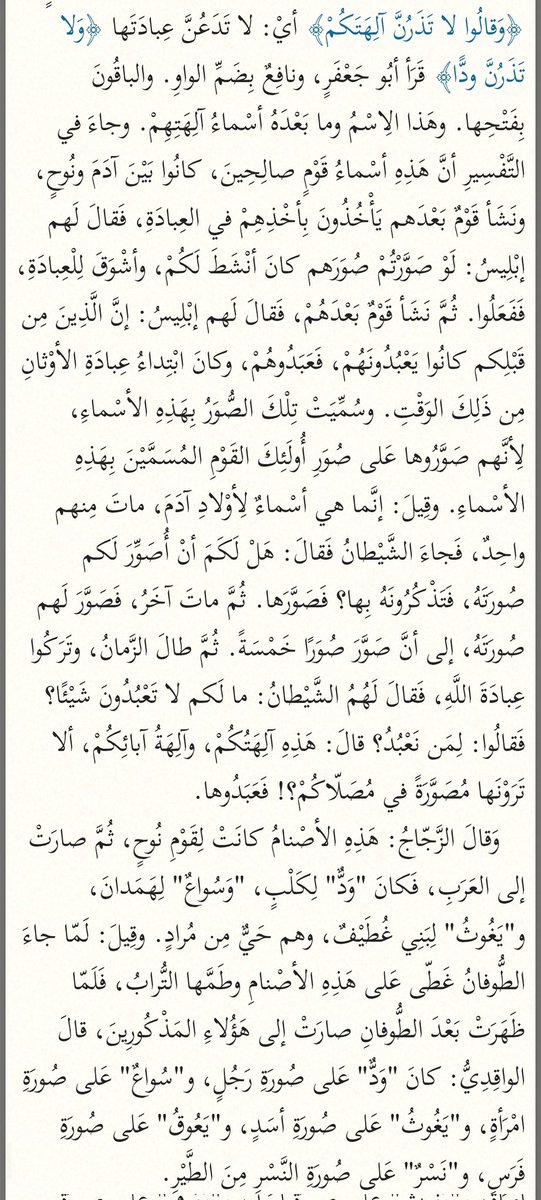 ﴿وَقالُوا لا تَذَرُنَّ آلِهَتَكُمْ﴾ أيْ: لا تَدَعُنَّ عِبادَتَها ﴿وَلا
تَذَرُنَّ ودًّا﴾ قَرَأ أبُو جَعْفَرٍ، ونافِعٌ بِضَمِّ الواوِ. والباقُونَ
بِفَتْحِها. وهَذا الِاسْمُ وما بَعْدَهُ أسْماءُ آلِهَتِهِمْ. وجاءَ في
التَّفْسِيرِ أنَّ هَذِهِ أسْماءُ قَوْمٍ صالِحِينَ، كانُوا بَيْنَ آدَمَ ونُوحٍ،
ونَشَأ قَوْمٌ بَعْدَهم يَأْخُذُونَ بِأخْذِهِمْ في العِبادَةِ، فَقالَ لَهم
إبْلِيسُ: لَوْ صَوَّرْتُمْ صُوَرَهم كانَ أنْشَطَ لَكُمْ، وأشْوَقَ لِلْعِبادَةِ،
فَفَعَلُوا. ثُمَّ نَشَأ قَوْمٌ بَعْدَهُمْ، فَقالَ لَهم إبْلِيسُ: إنَّ الَّذِينَ مِن
قَبْلِكم كانُوا يَعْبُدُونَهُمْ، فَعَبَدُوهُمْ، وكانَ ابْتِداءُ عِبادَةِ الأوْثانِ
مِن ذَلِكَ الوَقْتِ. وسُمِّيَتْ تِلْكَ الصُّوَرُ بِهَذِهِ الأسْماءِ،
لِأنَّهم صَوَّرُوها عَلى صُوَرِ أُولَئِكَ القَوْمِ المُسَمَّيْنَ بِهَذِهِ
الأسْماءِ. وقِيلَ: إنَّما هي أسْماءٌ لِأوْلادِ آدَمَ، ماتَ مِنهم
واحِدٌ، فَجاءَ الشَّيْطانُ فَقالَ: هَلْ لَكَمَ أنْ أُصَوِّرَ لَكم
صُورَتَهُ، فَتَذْكُرُونَهُ بِها؟ فَصَوَّرَها. ثُمَّ ماتَ آخَرُ، فَصَوَّرَ لَهم
صُورَتَهُ، إلى أنَّ صَوَّرَ صُوَرًا خَمْسَةً. ثُمَّ طالَ الزَّمانُ، وتَرَكُوا
عِبادَةَ اللَّهِ، فَقالَ لَهُمُ الشَّيْطانُ: ما لَكم لا تَعْبُدُونَ شَيْئًا؟
فَقالُوا: لِمَن نَعْبُدُ؟ قالَ: هَذِهِ آلِهَتُكُمْ، وآلِهَةُ آبائِكُمْ، ألا
تَرَوْنَها مُصَوَّرَةً في مُصَلّاكُمْ؟! فَعَبَدُوها.
وَقالَ الزَّجّاجُ: هَذِهِ الأصْنامُ كانَتْ لِقَوْمِ نُوحٍ، ثُمَّ صارَتْ
إلى العَرَبِ، فَكانَ "وَدٌّ" لِكَلْبٍ، "وَسُواعٌ" لِهَمَدانَ،
و"يَغُوثُ" لِبَنِي غُطَيْفٌ، وهم حَيٌّ مِن مُرادٍ. وقِيلَ: لَمّا جاءَ
الطُّوفانُ غَطّى عَلى هَذِهِ الأصْنامِ وطَمَّها التُّرابُ، فَلَمّا
ظَهَرَتْ بَعْدَ الطُّوفانِ صارَتْ إلى هَؤُلاءِ المَذْكُورِينَ، قالَ
الواقِدِيُّ: كانَ "وَدٌّ" عَلى صُورَةِ رَجُلٍ، و"سُواعٌ" عَلى صُورَةِ
امْرَأةٍ، و"يَغُوثُ" عَلى صُورَةِ أسَدٍ، و"يَعُوقُ" عَلى صُورَةِ
فَرَسٍ، و"نَسْرٌ" عَلى صُورَةِ النَّسْرِ مِنَ الطَّيْرِ.